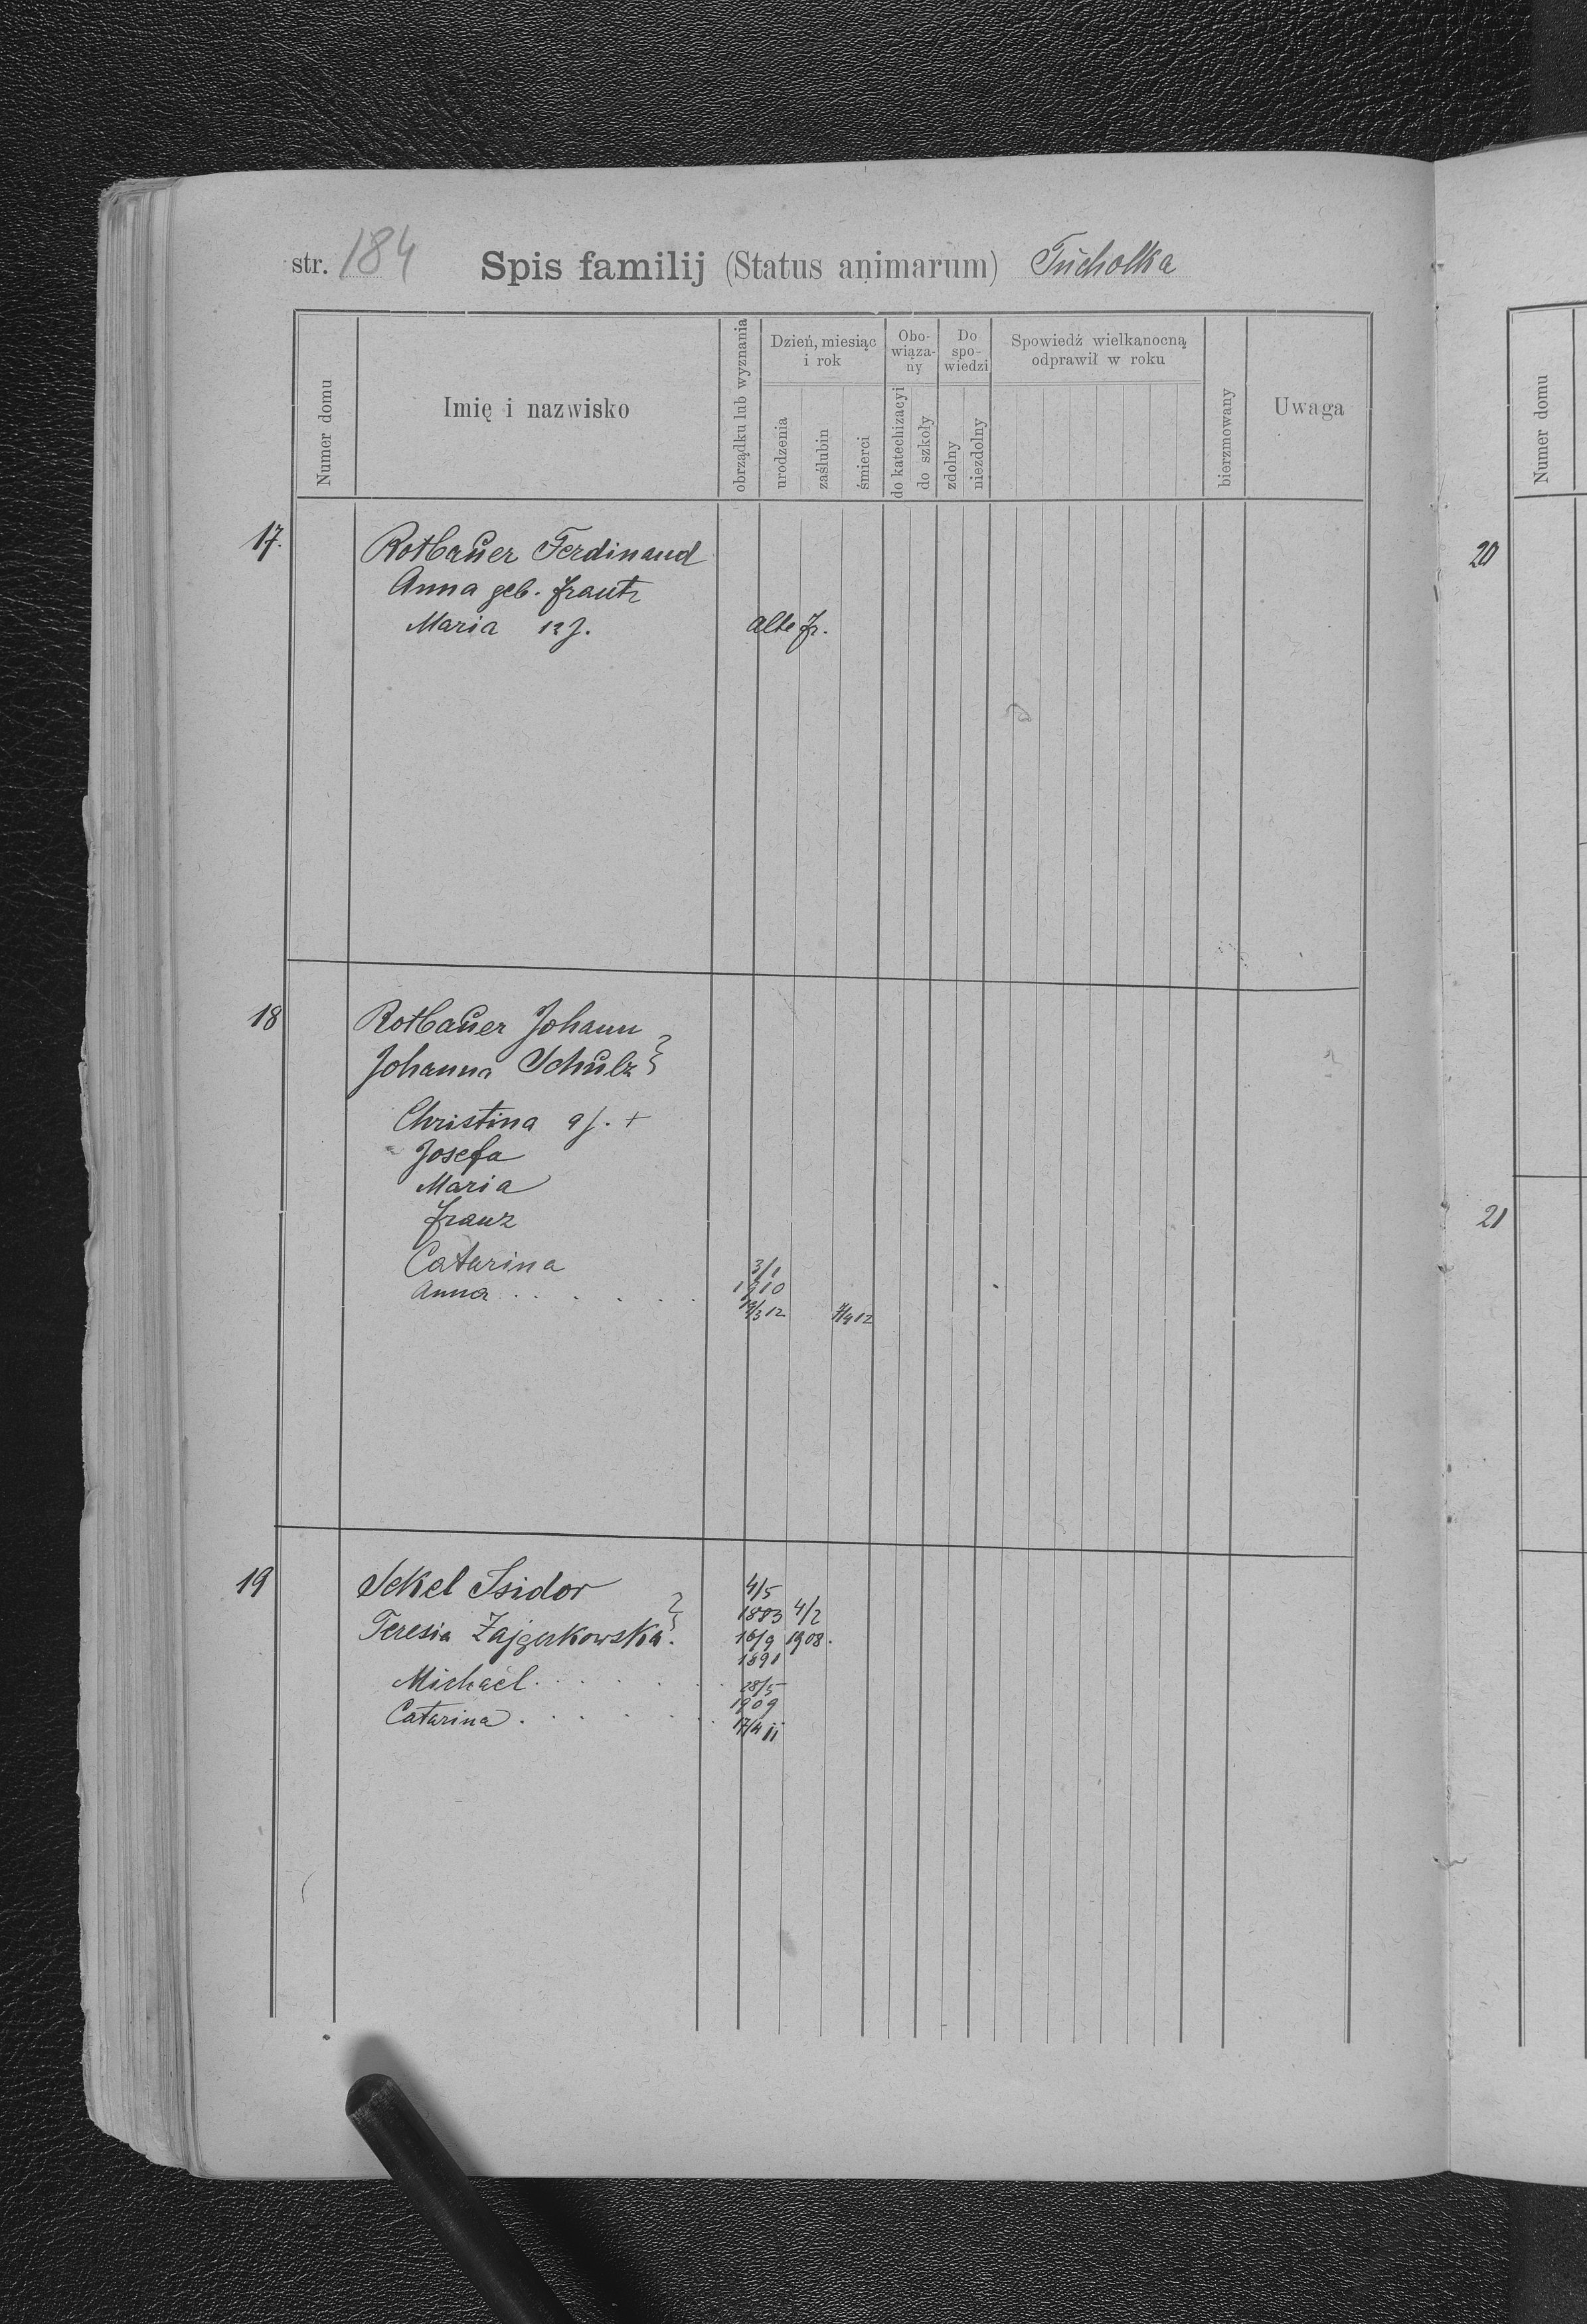 str. 184 Spis familij (Status animarum) Tucholka
Numer domu
Imię i nazwisko
obrządku lub wyznania
Dzień, miesiąc i rok
urodzenia
zaślubin
śmierci
Obo-
wiąza-
ny
do katechizacyi
do szkoły
Do
spo-
wiedzi
zdolny
niezdolny
Spowiedź wielkanocną
odprawił w roku
bierzmowany
Uwaga
17. Rotbaŭer Ferdinand
Anna geb. Frantz
Maria 12 J. alte Jr.
18 Rotbaŭer Johann
Johanna Schŭlz
Christina 9 J. +
Josefa
Maria
Franz
Catarina 3/1 1910
Anna . . . . . . 19/3 12 7/4 12
19 Sekel Isidor 4/5 1883 4/2 1908.
Teresia Zajgerkowska. 16/9 1891
Michael . . . . . . 28/5 1909
Catarina . . . . . . 17/4 11
Numer domu
20
21